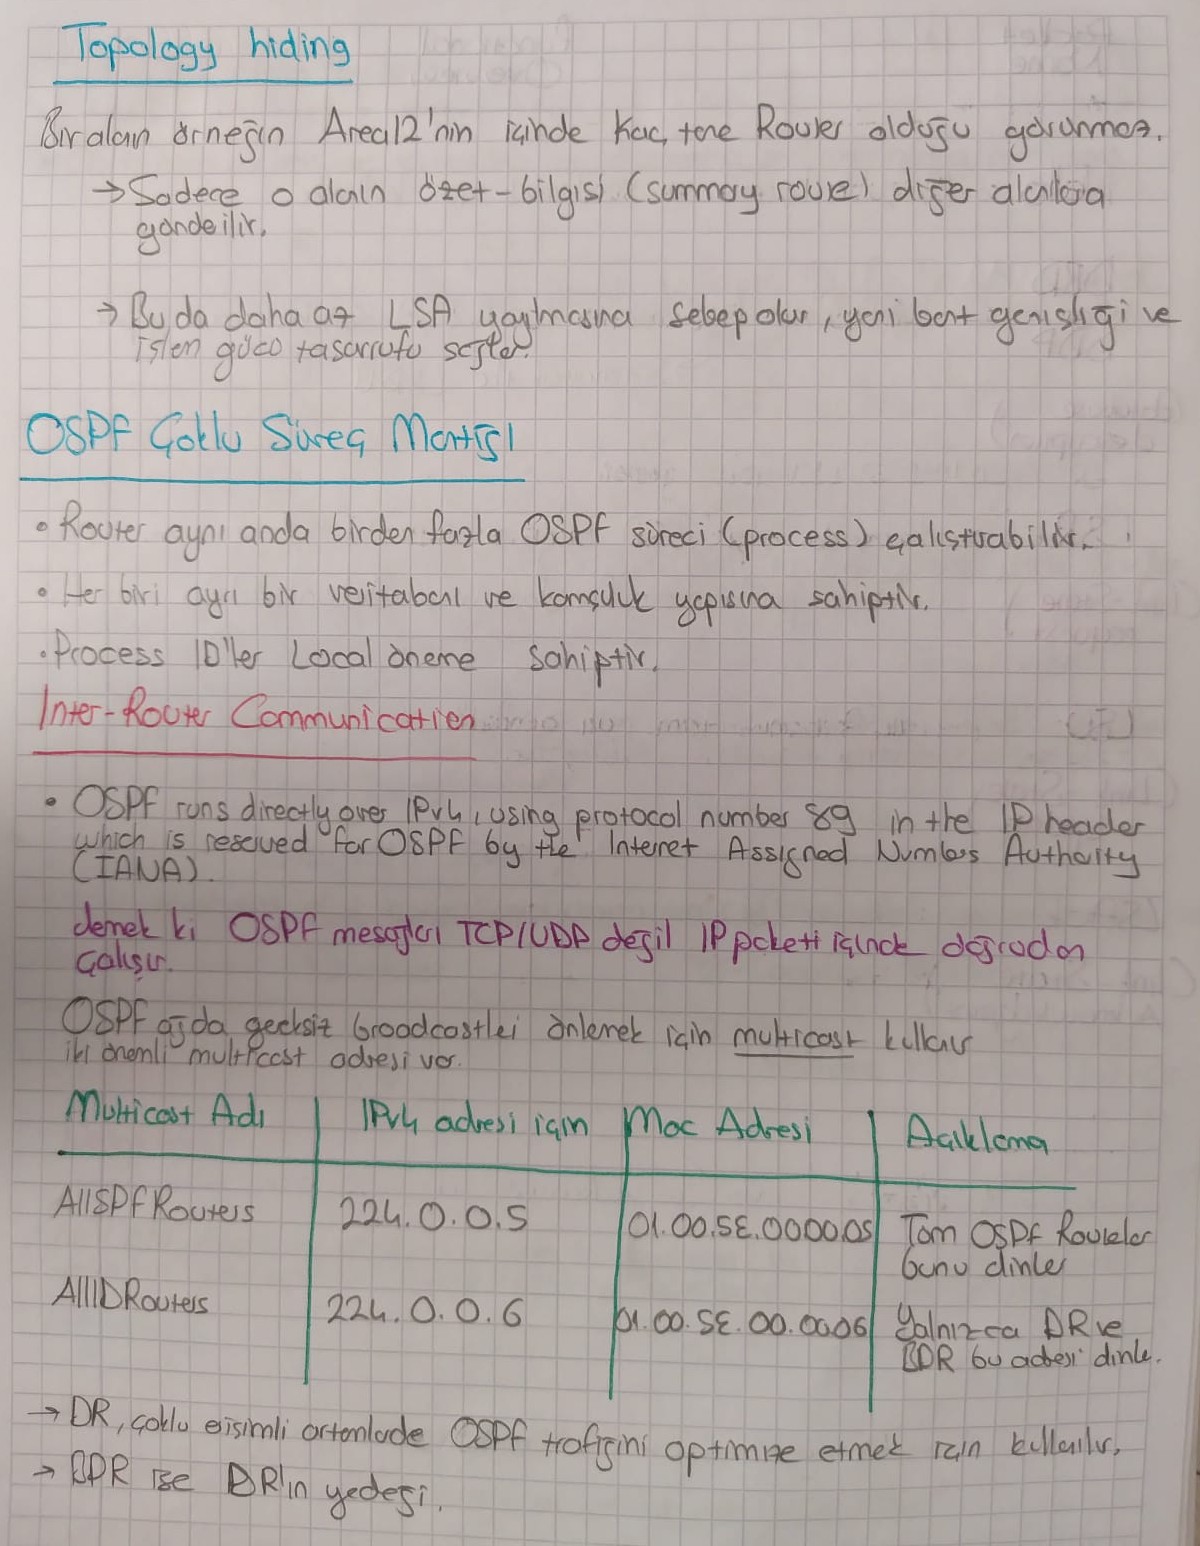 Topology hiding
Bir alan örneğin Area12'nin içinde kaç tane Router olduğu görünmez.
→ Sadece o alanın özet-bilgisi (summay route) diğer alanlara
gönderilir.
→ Bu da daha az LSA yayılmasına sebep olur, yani bant genişliği ve
işlem gücü tasarrufu sağlar.
OSPF Çoklu Süreç Mantığı
• Router aynı anda birden fazla OSPF süreci (process) çalıştırabilir.
• Her biri ayrı bir veritabanı ve komşuluk yapısına sahiptir.
• Process ID'ler Local öneme sahiptir.
Inter-Router Communication
• OSPF runs directly over IPv4, using protocol number 89 in the IP header
which is reserved for OSPF by the Internet Assigned Numbers Authority
(IANA).
demek ki OSPF mesajları TCP/UDP değil IP paketi içinde doğrudan
çalışır.
OSPF ağda gereksiz broadcastleri önlemek için multicast kullanır
iki önemli multicast adresi var.
Multicast Adı | IPv4 adresi için | Mac Adresi | Açıklama
AllSPFRouters | 224.0.0.5 | 01.00.5E.0000.05 | Tüm OSPF Routerler
bunu dinler
AllDRouters | 224.0.0.6 | 01.00.5E.00.0006 | Yalnızca DR ve
BDR bu adresi dinler.
→ DR, çoklu erişimli ortamlarda OSPF trafiğini optimize etmek için kullanılır.
→ BDR ise DR'ın yedeği.